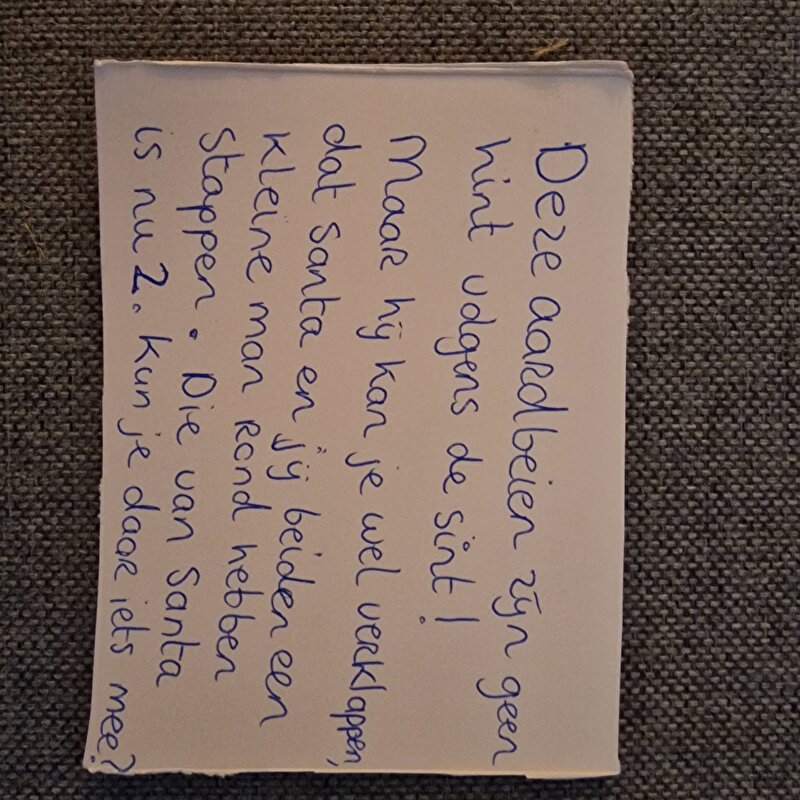 Deze aardbeien zijn geen
hint volgens de sint!
Maar hij kan je wel verklappen,
dat Santa en jij beiden een
kleine man rond hebben
stappen. Die van Santa
is nu 2. Kun je daar iets mee?